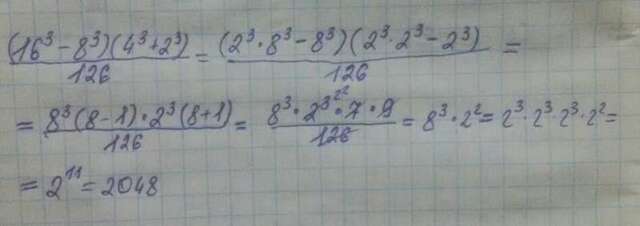 (16³ − 8³)(4³ + 2³)/126 = (2³ · 8³ − 8³)(2³ · 2³ − 2³)/126 =
= 8³(8 − 1) · 2³(8 + 1)/126 = 8³ · 2³ 2² · 7 · 9/126 = 8³ · 2² = 2³ · 2³ · 2³ · 2² =
= 2¹¹ = 2048